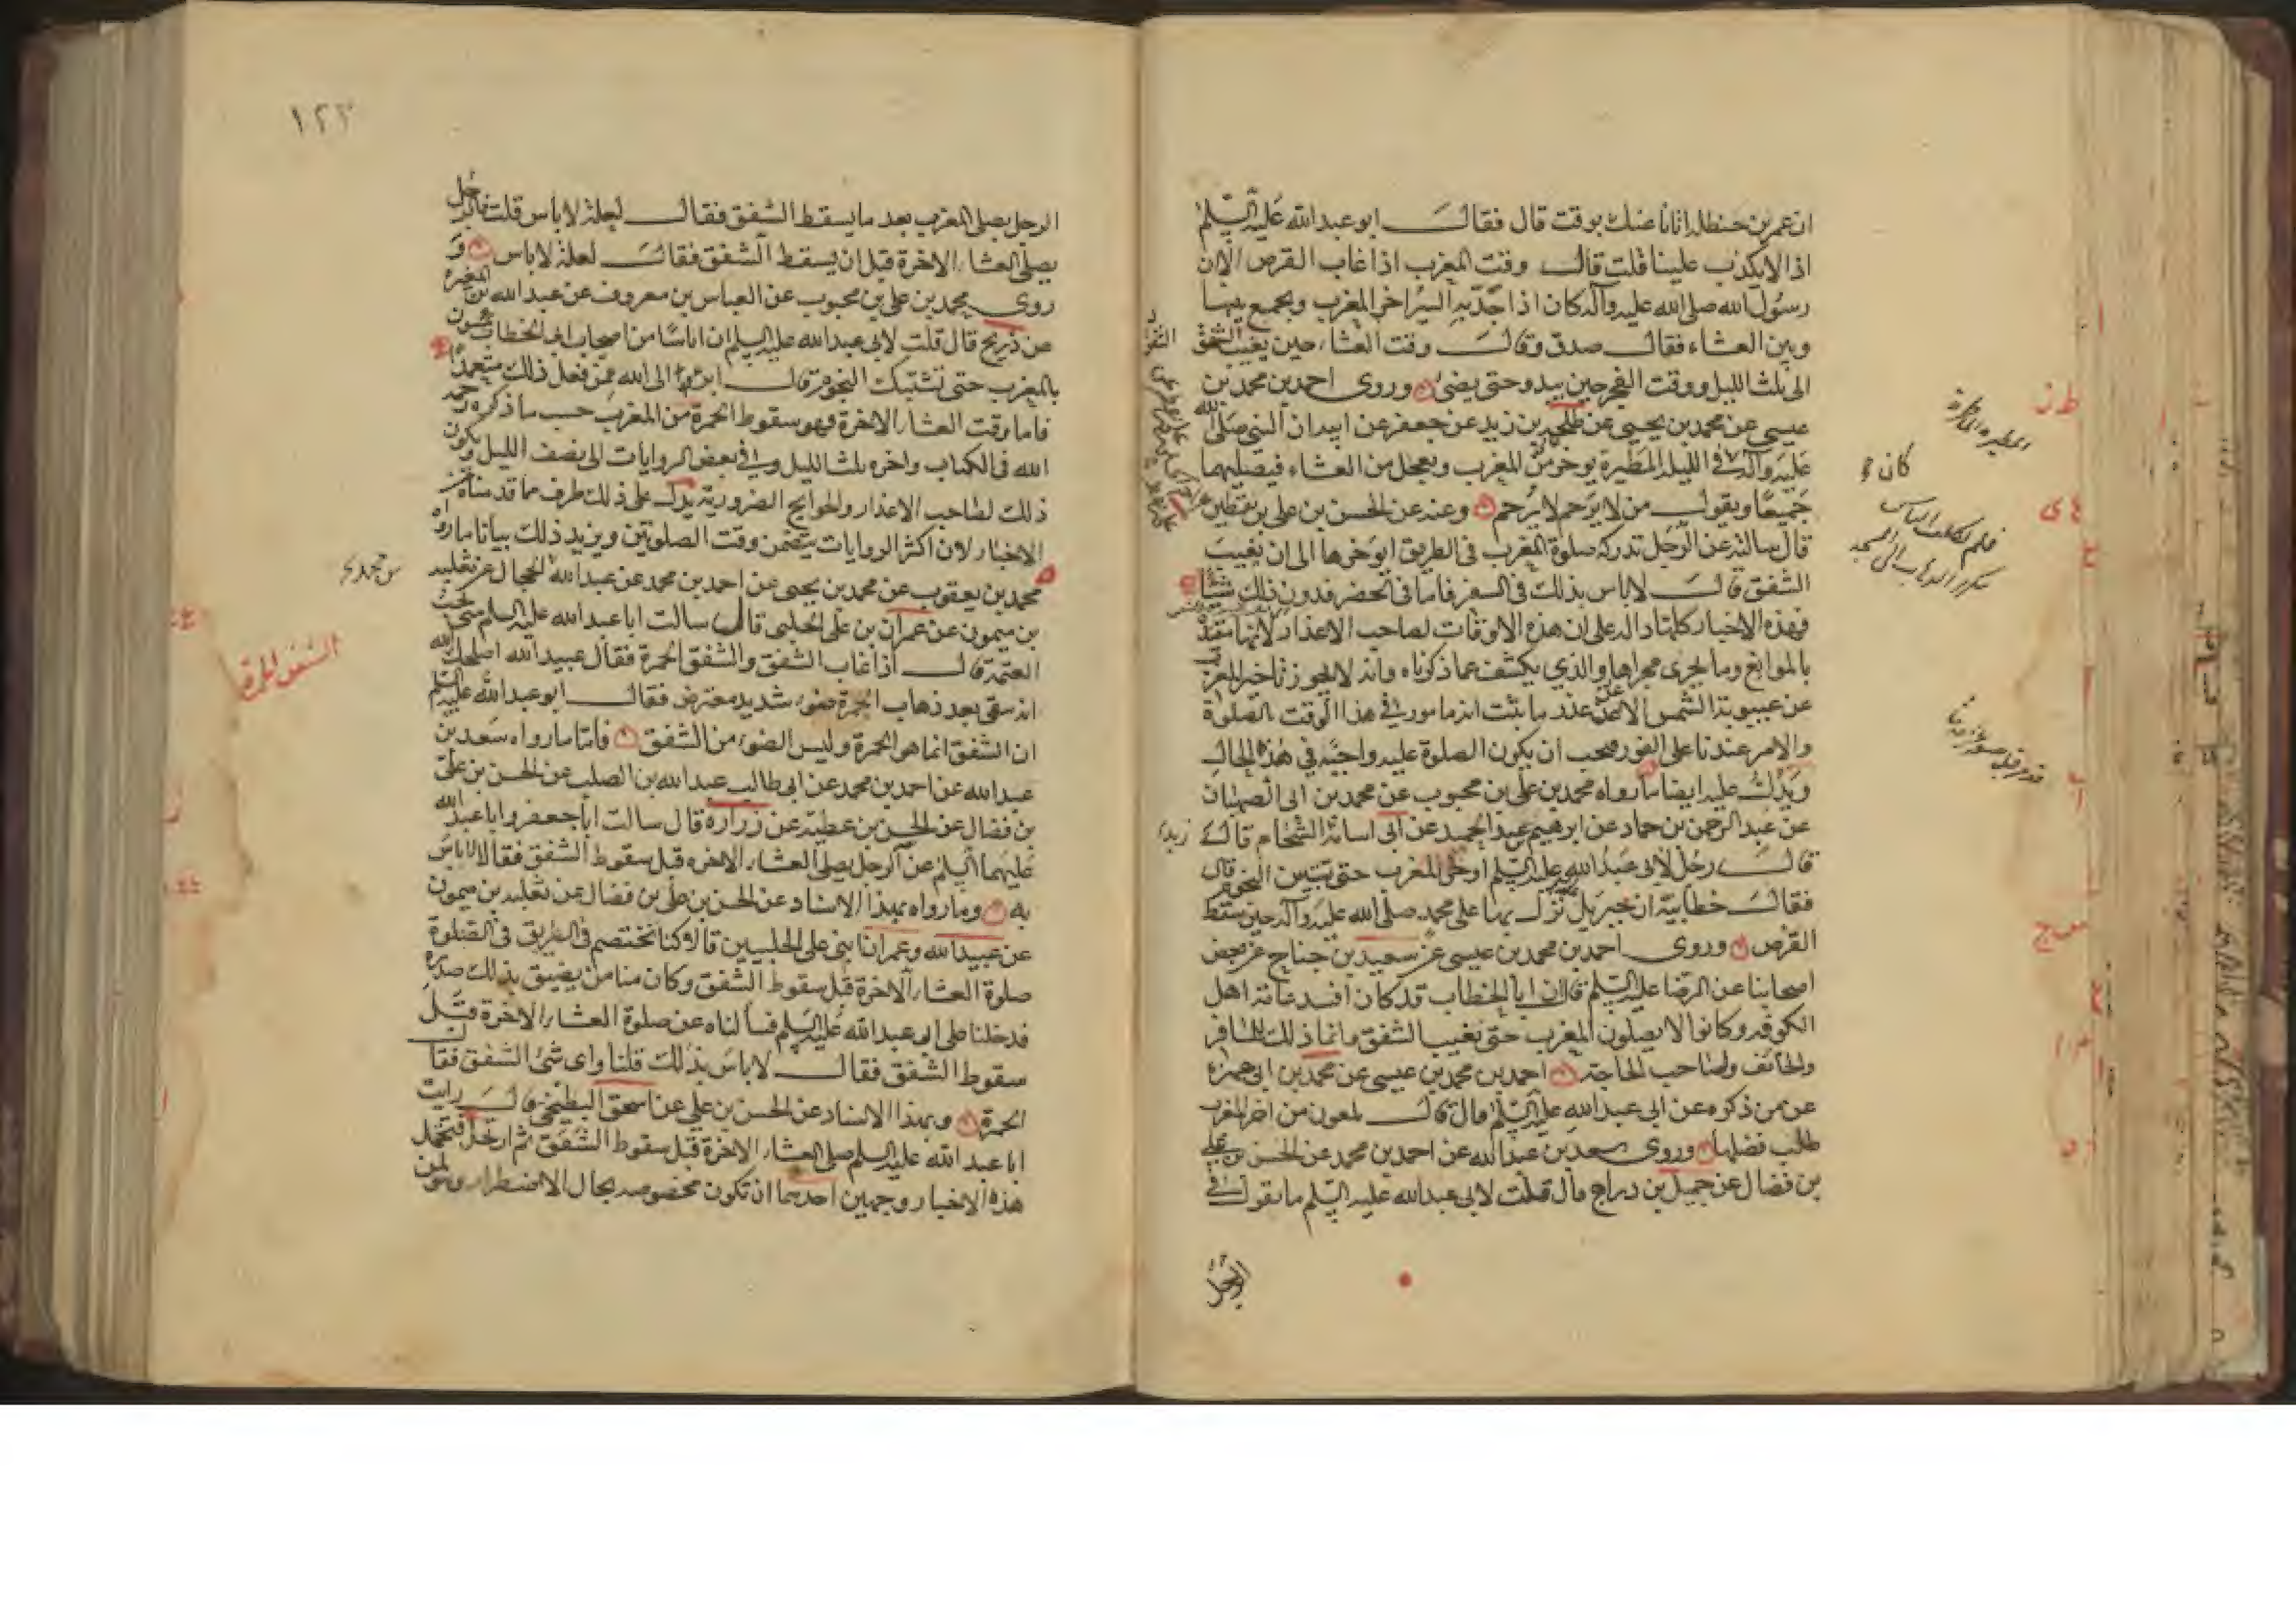 ان عمر بن حنظلة اتانا عنك بوقت قال فقال ابو عبد الله عليه السلم
اذا لا يكذب علينا قلت قال وقت المغرب اذا غاب القرص الا ان
رسول الله صلى الله عليه وآله كان اذا جد به السير اخر المغرب ويجمع بينها
وبين العشاء فقال صدق وقال وقت العشاء حين يغيب الشفق
الى ثلث الليل ووقت الفجر حين يبدو حتى يضئ وروى احمد بن محمد بن
عيسى عن محمد بن يحيى عن طلحة بن زيد عن جعفر عن ابيه ان النبي صلى الله
عليه وآله في الليلة المطيرة يوخر من المغرب ويعجل من العشاء فيصليهما
جميعا ويقول من لا يرحم لا يرحم وعنه عن الحسن بن علي بن يقطين
قال سالته عن الرجل تدركه صلوة المغرب في الطريق ايوخرها الى ان يغيب
الشفق قال لا باس بذلك في السفر فاما في الحضر فدون ذلك شيئا
فهذه الاخبار كلها دالة على ان هذه الاوقات لصاحب الاعذار لانها مقيدة
بالموانع وما يجرى مجراها والذي يكشف عما ذكرناه وانه لا يجوز تاخير المغرب
عن غيبوبة الشمس الا عن عذر ما ثبت انه مامور في هذا الوقت بالصلوة
والامر عندنا على الفور فيجب ان يكون الصلوة عليه واجبة في هذه الحال
ويدل عليه ايضا ما رواه محمد بن علي بن محبوب عن محمد بن ابى الصهبان
عن عبد الرحمن بن حماد عن ابرهيم بن عبد الحميد عن ابى اسامة الشحام قال
قال رجل لابى عبد الله عليه السلم اوخر المغرب حتى تتبين النجوم قال
فقال خطابية ان جبريل نزل بها على محمد صلى الله عليه وآله حين سقط
القرص وروى احمد بن محمد بن عيسى عن سعيد بن جناح عن بعض
اصحابنا عن الرضا عليه السلم قال ان ابا الخطاب قد كان افسد عامة اهل
الكوفة وكانوا لا يصلون المغرب حتى تغيب الشفق وانما ذلك للمسافر
والخائف ولصاحب الحاجة احمد بن محمد بن عيسى عن محمد بن ابى حمزة
عن من ذكره عن ابى عبد الله عليه السلم قال قال ملعون من اخر المغرب
طلب فضلها وروى سعد بن عبد الله عن احمد بن محمد عن الحسن بن علي
بن فضال عن جميل بن دراج قال قلت لابى عبد الله عليه السلم ما تقول في
الرجل
كان
فلم يكلف الناس
زيد
١٢٢
الرجل يصلى المغرب بعد ما يسقط الشفق فقال لعلة لا باس قلت فالرجل
يصلى العشاء الاخرة قبل ان يسقط الشفق فقال لعلة لا باس و
روى محمد بن علي بن محبوب عن العباس بن معروف عن عبد الله بن المغيرة
عن ذريح قال قلت لابى عبد الله عليه السلم ان اناسا من اصحاب ابى الخطاب يمسون
بالمغرب حتى تشتبك النجوم قال ابرء الى الله ممن فعل ذلك متعمدا
فاما وقت العشاء الاخرة فهو سقوط الحمرة من المغرب حسب ما ذكره رحمه
الله في الكتاب واخره ثلث الليل وفي بعض الروايات الى نصف الليل ويكون
ذلك لصاحب الاعذار والحوايج الضرورية يدل على ذلك طرف مما قدمناه من
الاخبار لان اكثر الروايات يتضمن وقت الصلوتين ويزيد ذلك بيانا ما رواه
محمد بن يعقوب عن محمد بن يحيى عن احمد بن محمد عن عبد الله الحجال عن ثعلبه
بن ميمون عن عمران بن على الحلبى قال سالت ابا عبد الله عليه السلم متى تجب
العتمة قال اذا غاب الشفق والشفق الحمرة فقال عبيد الله اصلحك الله
انه يبقى بعد ذهاب الحمرة ضوء شديد معترض فقال ابو عبد الله عليه السلم
ان الشفق انما هو الحمرة وليس الضوء من الشفق فاما ما رواه سعد بن
عبد الله عن احمد بن محمد عن ابى طالب عبد الله بن الصلت عن الحسن بن على
بن فضال عن الحسن بن عطية عن زرارة قال سالت ابا جعفر وابا عبد الله
عليهما السلم عن الرجل يصلى العشاء الاخرة قبل سقوط الشفق فقالا لا باس
به وما رواه بهذا الاسناد عن الحسن بن على بن فضال عن ثعلبه بن ميمون
عن عبيد الله وعمران ابنى على الحلبيين قالا كنا نختصم في الطريق في الصلوة
صلوة العشاء الاخرة قبل سقوط الشفق وكان منا من يضيق بذلك صدره
فدخلنا على ابى عبد الله عليه السلم فسألناه عن صلوة العشاء الاخرة قبل
سقوط الشفق فقال لا باس بذلك قلنا واى شئ الشفق فقال
الحمرة وبهذا الاسناد عن الحسن بن علي عن اسحق البطيخي قال رايت
ابا عبد الله عليه السلم صلى العشاء الاخرة قبل سقوط الشفق ثم ارتحل فتحمل
هذه الاخبار وجهين احدهما ان تكون مخصوصة بحال الاضطرار ولمن
الشفق الحمرة